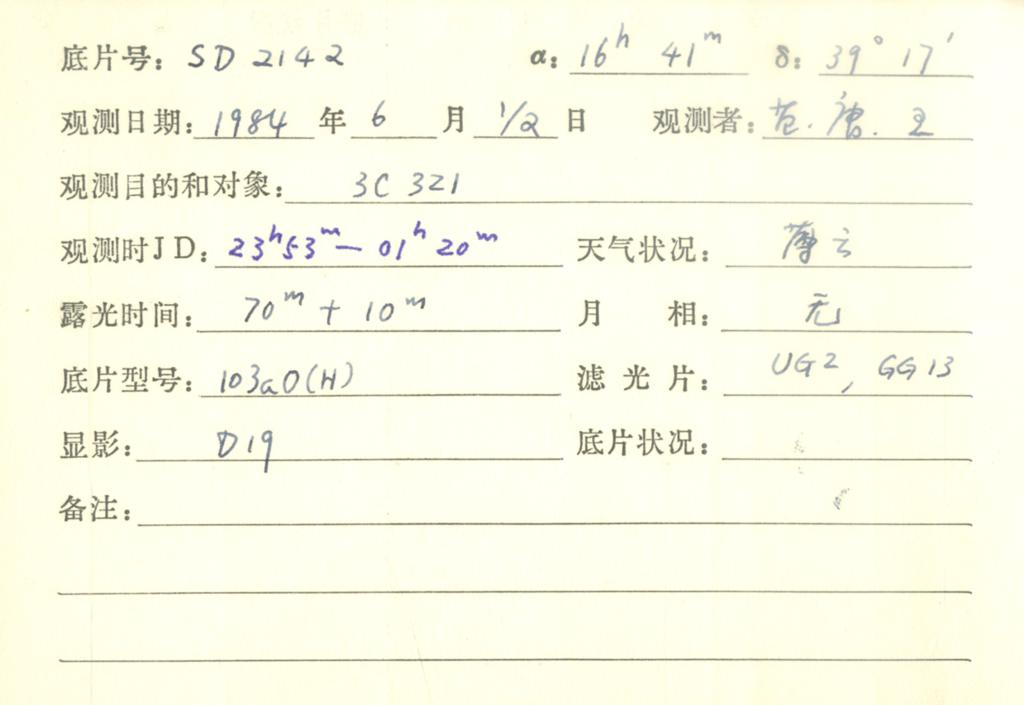 底片号: SD 2142 α: 16h 41m δ: 39° 17′
观测日期: 1984 年 6 月 1/2 日 观测者: 范. 唐. 王
观测目的和对象: 3C 321
观测时JD: 23h53m — 01h 20m 天气状况: 薄云
露光时间: 70m + 10m 月 相: 无
底片型号: 103aO(H) 滤光片: UG2, GG13
显影: D19 底片状况:
备注: